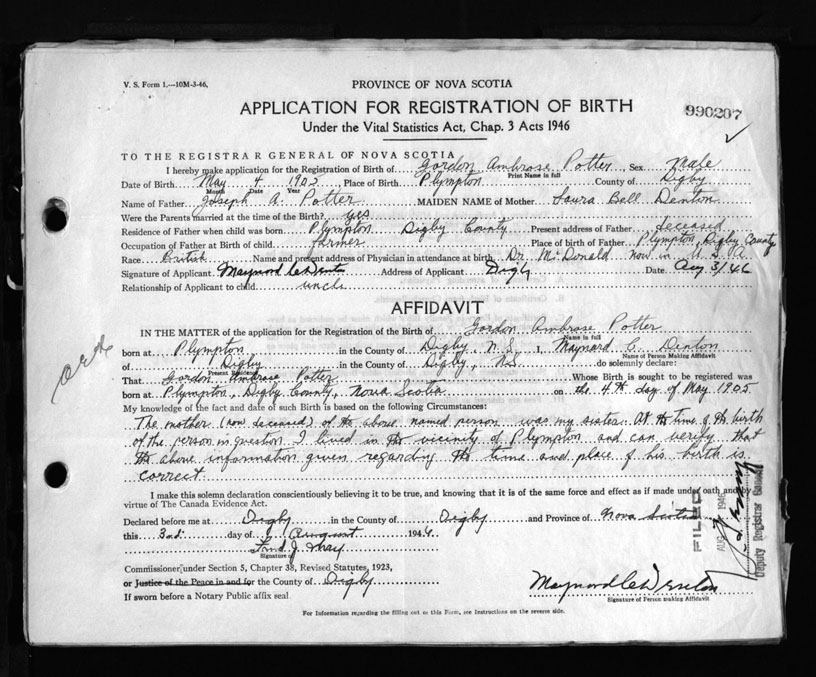 V. S. Form 1.—10M-3-46.
PROVINCE OF NOVA SCOTIA
APPLICATION FOR REGISTRATION OF BIRTH
990207
Under the Vital Statistics Act, Chap. 3 Acts 1946
TO THE REGISTRAR GENERAL OF NOVA SCOTIA
I hereby make application for the Registration of Birth of Gordon Ambrose Potter, Sex Male
Print Name in full
Date of Birth May 4 1905, Place of Birth Plympton County of Digby
Month Date Year
Name of Father Joseph A. Potter MAIDEN NAME of Mother Laura Bell Denton
Were the Parents married at the time of the Birth? yes
Residence of Father when child was born Plympton Digby County Present address of Father deceased
Occupation of Father at Birth of child farmer Place of birth of Father Plympton, Digby County
Race British Name and present address of Physician in attendance at birth Dr. McDonald now in U.S.A.
Signature of Applicant Maynard C Denton Address of Applicant Digby Date Aug 3/46
Relationship of Applicant to child uncle
AFFIDAVIT
IN THE MATTER of the application for the Registration of the Birth of Gordon Ambrose Potter
Name in full
born at Plympton in the County of Digby N.S. I, Maynard C. Denton
Name of Person Making Affidavit
of Digby in the County of Digby, N.S. do solemnly declare:
Present Residence
That Gordon Ambrose Potter Whose Birth is sought to be registered was
born at Plympton, Digby County, Nova Scotia on the 4th day of May 1905
My knowledge of the fact and date of such Birth is based on the following Circumstances:
The mother (now deceased) of the above named person was my sister. At the time of the birth
of the person in question I lived in the vicinity of Plympton and can verify that
the above information given regarding the time and place of his birth is
correct
I make this solemn declaration conscientiously believing it to be true, and knowing that it is of the same force and effect as if made under oath and by
virtue of The Canada Evidence Act.
Declared before me at Digby in the County of Digby and Province of Nova Scotia
this 3rd. day of August 1946
Signature of
Commissioner under Section 5, Chapter 38, Revised Statutes, 1923,
or Justice of the Peace in and for the County of Digby
If sworn before a Notary Public affix seal
Maynard C Denton
Signature of Person making Affidavit
For Information regarding the filling out of this Form, see Instructions on the reverse side.
FILED
AUG 1946
Deputy Registrar General